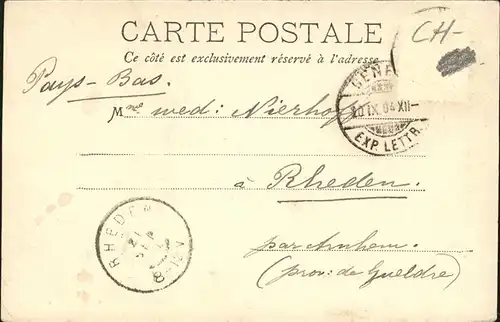 CARTE POSTALE
Ce côté est exclusivement réservé à l'adresse
CH-
Pays-Bas.
Mme wed: Nierhoff
GENE
10 IX. 04 XII-
EXP. LETTR.
à Rheden.
par Arnhem.
(prov: de Gueldre)
RHEDEN